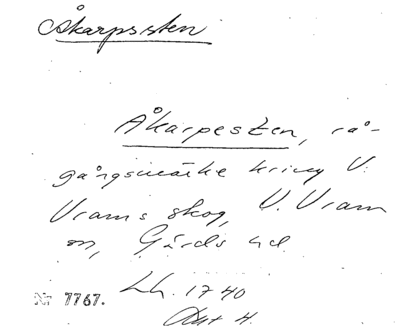 Åkarpssten
Åkarpesten, rå-
gångsmärke kring V.
Vrams skog, V. Vram
sn, Gärds hd.
Nr 7767. Lh. 1740
Akt 4.